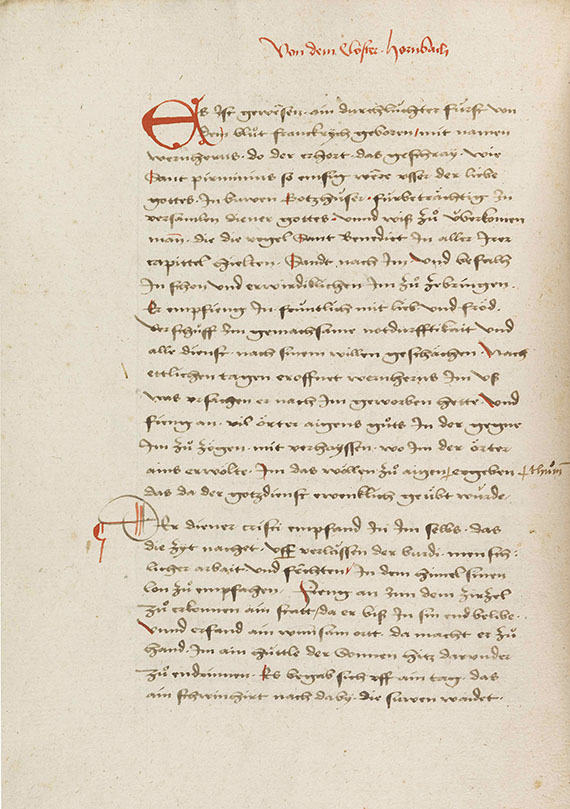 Von dem Closter hornbach
Es ist gewesen ain durchluchter furst von
dem blut franckrych geboren mit namen
wernherus · do der erhort · das geschray · wie
Sant pirminius so emsig were usser der liebe
gottes · In buwen Gotzhüser · furbetrachtig In
versamlen diener gottes · unnd wiß zů überkomen
man · die die regel Sant Benedict in aller irer
capittel hielten · Sandt nach im · und befalh
in schon und erwirdiklichen im zů zebringen ·
Er empfieng in früntlich mit lieb und fröd ·
verschüff im gemachsame notdurfftikait und
alle dienst · nach sinem willen geschächen · Nach
ettlichen tagen eroffnet wernherus im uß
was ursachen er nach im geworben hette · Und
fieng an · vil örter aigens gůts in der gegne
im zů zögen · mit verhayssen · wo im der örter
ains erwölte · Im das wöllen zů aigen ergeben thům
das da der gotzdienst ewenklich geübt wurde ·
Der diener cristi empfand in im selbs · das
die zyt nachet · uff verlussen der burdi · mensch=
licher arbait und fechten · in dem himel sinen
lon zů empfahen · Fieng an umm dem zirzel
zů erkonnen ain statt / da er biß in sin end belibe ·
Unnd erfand ain wunsam ortt · da macht er zů
hand · im ain hüttle der Sonnen hitz darunder
zů endrinnen · Es begab sich uff ain tag · das
ain schwinhirt nach daby · die suwen waidet ·